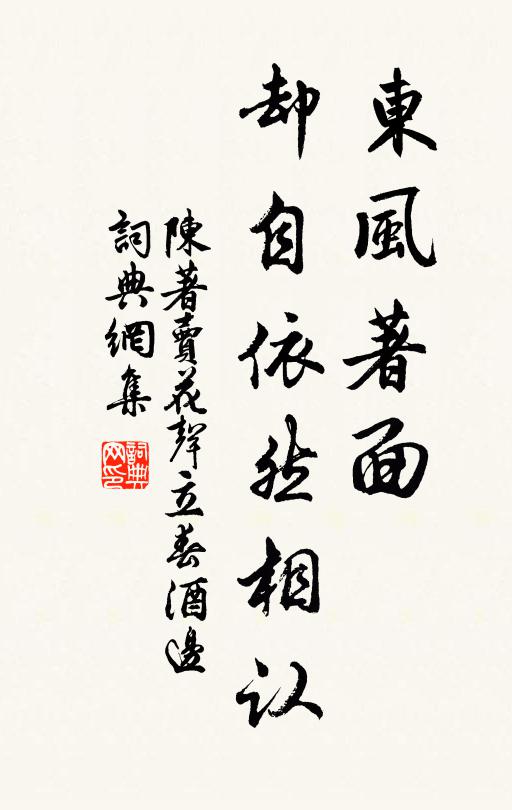 東風著面
却自依然相认
陳著賣花聲立春酒邊
詞典網集
詞典网印